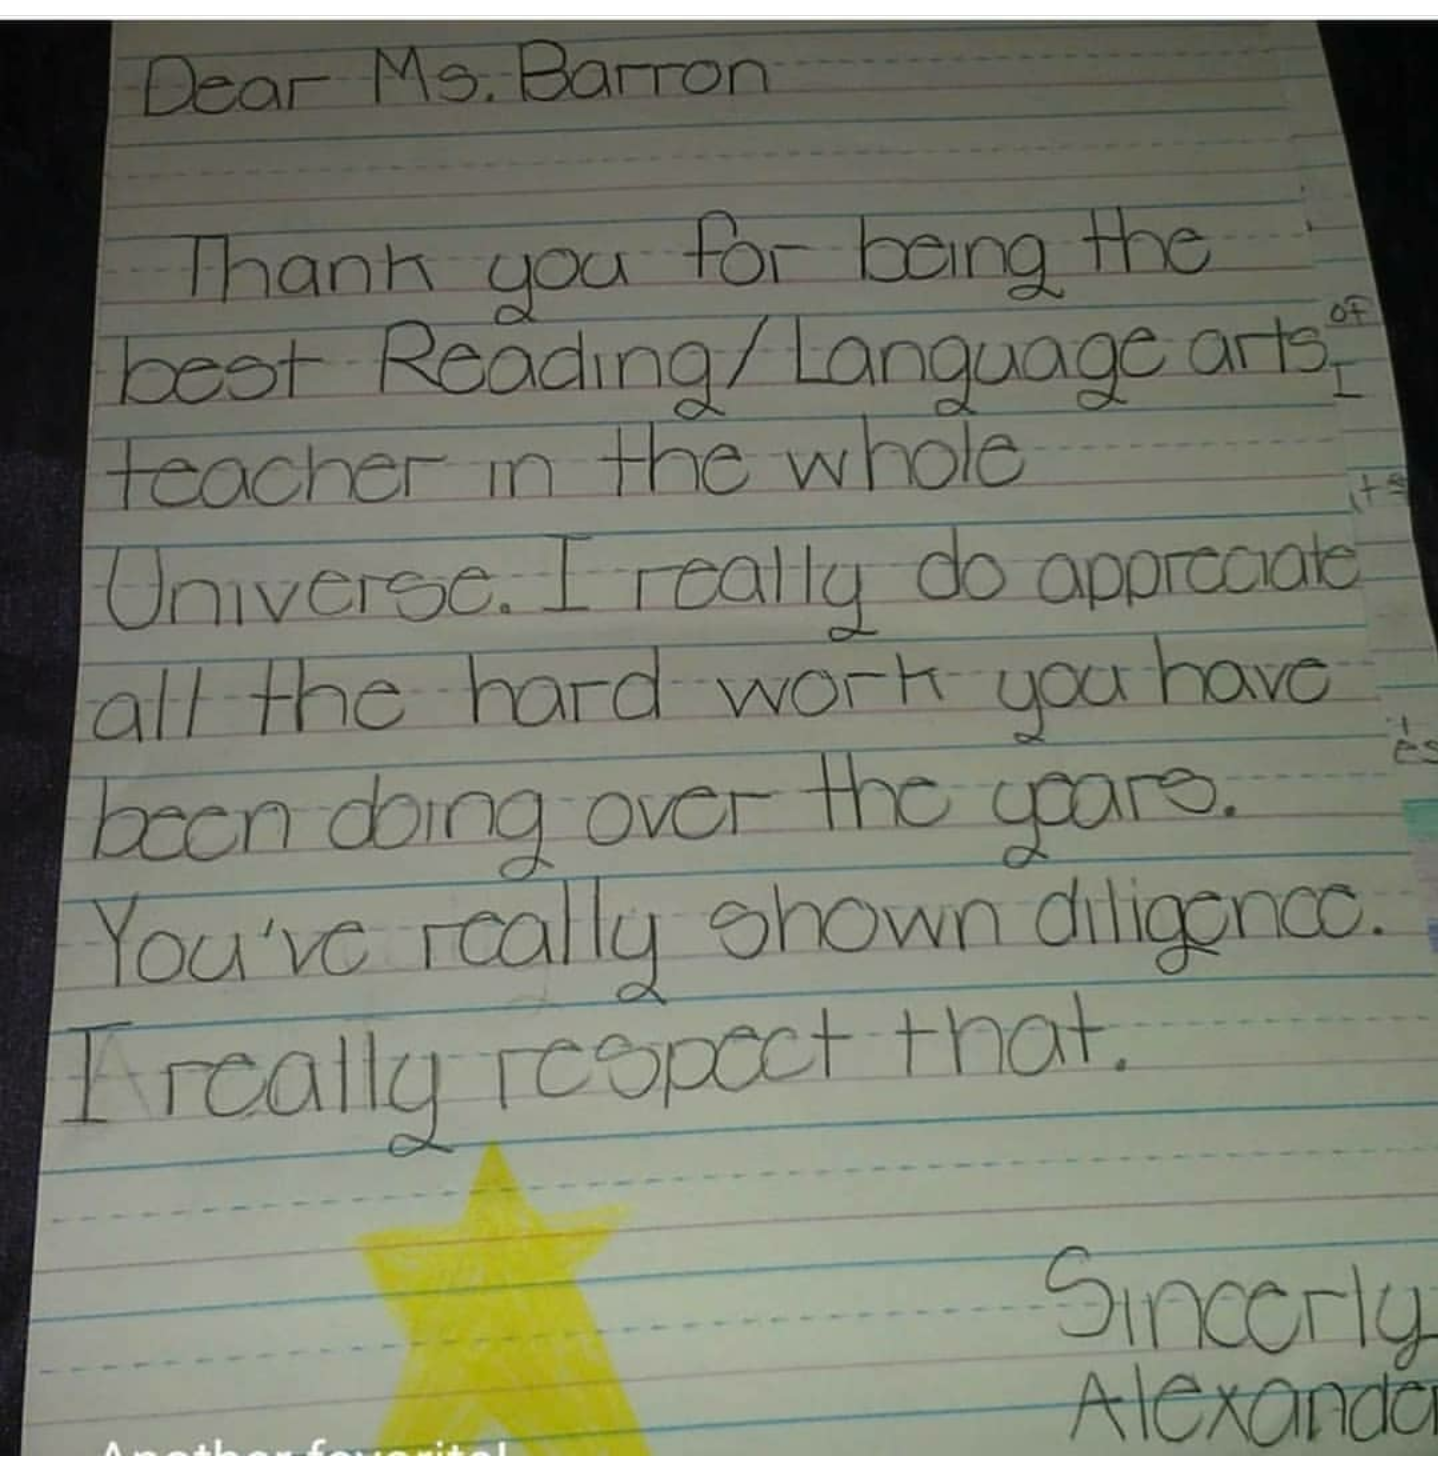 Dear Ms. Barron
Thank you for being the
best Reading/Language arts
teacher in the whole
Universe. I really do appreciate
all the hard work you have
been doing over the years.
You've really shown diligence.
I really respect that.
Sincerly
Alexander
Another favorite!
of
I